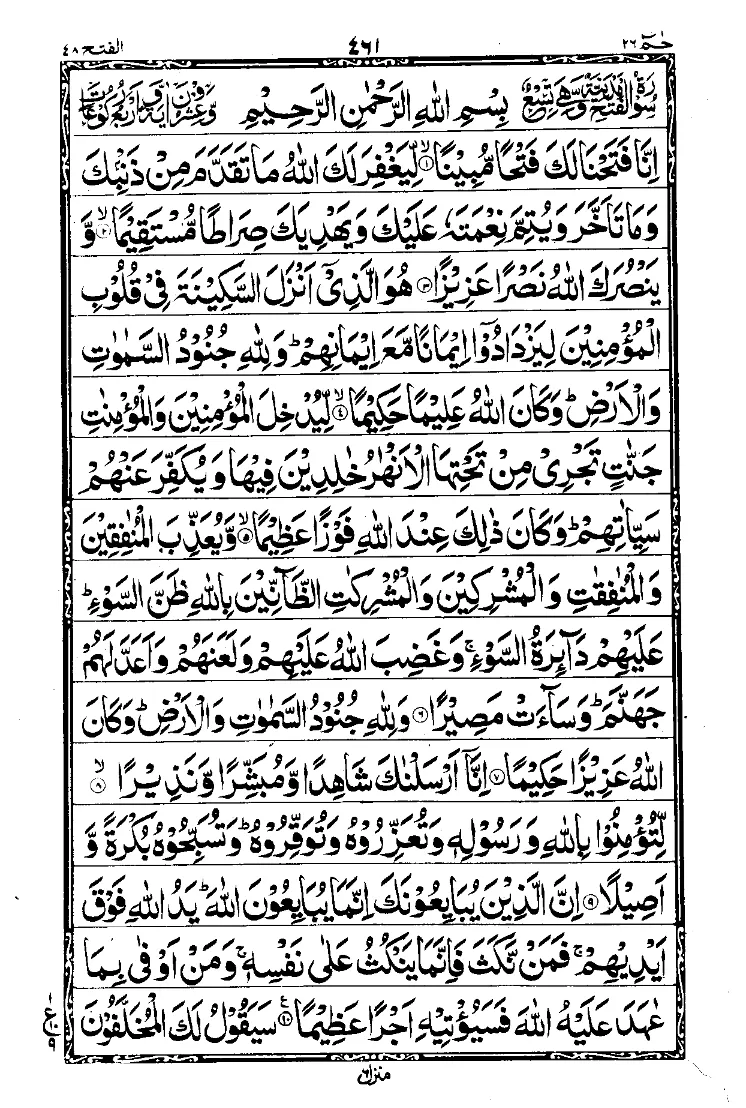 حٰمٓ ٢٦
٤٦١
الفتح ٤٨
سُوْرَةُ الْفَتْحِ مَدَنِيَّةٌ وَّهِيَ تِسْعٌ
بِسْمِ اللّٰهِ الرَّحْمٰنِ الرَّحِيْمِ
وَّعِشْرُوْنَ اٰيَةً وَّاَرْبَعُ رُكُوْعَاتٍ
اِنَّا فَتَحْنَا لَكَ فَتْحًا مُّبِيْنًا ۙ﴿١﴾ لِّيَغْفِرَ لَكَ اللّٰهُ مَا تَقَدَّمَ مِنْ ذَنْۢبِكَ
وَمَا تَاَخَّرَ وَيُتِمَّ نِعْمَتَهٗ عَلَيْكَ وَيَهْدِيَكَ صِرَاطًا مُّسْتَقِيْمًا ۙ﴿٢﴾ وَّ
يَنْصُرَكَ اللّٰهُ نَصْرًا عَزِيْزًا ﴿٣﴾ هُوَ الَّذِيْٓ اَنْزَلَ السَّكِيْنَةَ فِيْ قُلُوْبِ
الْمُؤْمِنِيْنَ لِيَزْدَادُوْٓا اِيْمَانًا مَّعَ اِيْمَانِهِمْ ؕ وَلِلّٰهِ جُنُوْدُ السَّمٰوٰتِ
وَالْاَرْضِ ؕ وَكَانَ اللّٰهُ عَلِيْمًا حَكِيْمًا ۙ﴿٤﴾ لِّيُدْخِلَ الْمُؤْمِنِيْنَ وَالْمُؤْمِنٰتِ
جَنّٰتٍ تَجْرِيْ مِنْ تَحْتِهَا الْاَنْهٰرُ خٰلِدِيْنَ فِيْهَا وَيُكَفِّرَ عَنْهُمْ
سَيِّاٰتِهِمْ ؕ وَكَانَ ذٰلِكَ عِنْدَ اللّٰهِ فَوْزًا عَظِيْمًا ۙ﴿٥﴾ وَّيُعَذِّبَ الْمُنٰفِقِيْنَ
وَالْمُنٰفِقٰتِ وَالْمُشْرِكِيْنَ وَالْمُشْرِكٰتِ الظَّآنِّيْنَ بِاللّٰهِ ظَنَّ السَّوْءِ ؕ
عَلَيْهِمْ دَآئِرَةُ السَّوْءِ ۚ وَغَضِبَ اللّٰهُ عَلَيْهِمْ وَلَعَنَهُمْ وَاَعَدَّ لَهُمْ
جَهَنَّمَ ؕ وَسَآءَتْ مَصِيْرًا ﴿٦﴾ وَلِلّٰهِ جُنُوْدُ السَّمٰوٰتِ وَالْاَرْضِ ؕ وَكَانَ
اللّٰهُ عَزِيْزًا حَكِيْمًا ﴿٧﴾ اِنَّآ اَرْسَلْنٰكَ شَاهِدًا وَّمُبَشِّرًا وَّنَذِيْرًا ۙ﴿٨﴾
لِّتُؤْمِنُوْا بِاللّٰهِ وَرَسُوْلِهٖ وَتُعَزِّرُوْهُ وَتُوَقِّرُوْهُ ؕ وَتُسَبِّحُوْهُ بُكْرَةً وَّ
اَصِيْلًا ﴿٩﴾ اِنَّ الَّذِيْنَ يُبَايِعُوْنَكَ اِنَّمَا يُبَايِعُوْنَ اللّٰهَ ؕ يَدُ اللّٰهِ فَوْقَ
اَيْدِيْهِمْ ۚ فَمَنْ نَّكَثَ فَاِنَّمَا يَنْكُثُ عَلٰى نَفْسِهٖ ۚ وَمَنْ اَوْفٰى بِمَا
عٰهَدَ عَلَيْهُ اللّٰهَ فَسَيُؤْتِيْهِ اَجْرًا عَظِيْمًا ﴿١٠﴾ سَيَقُوْلُ لَكَ الْمُخَلَّفُوْنَ
١
ع
١٠
٩
منزل ٦